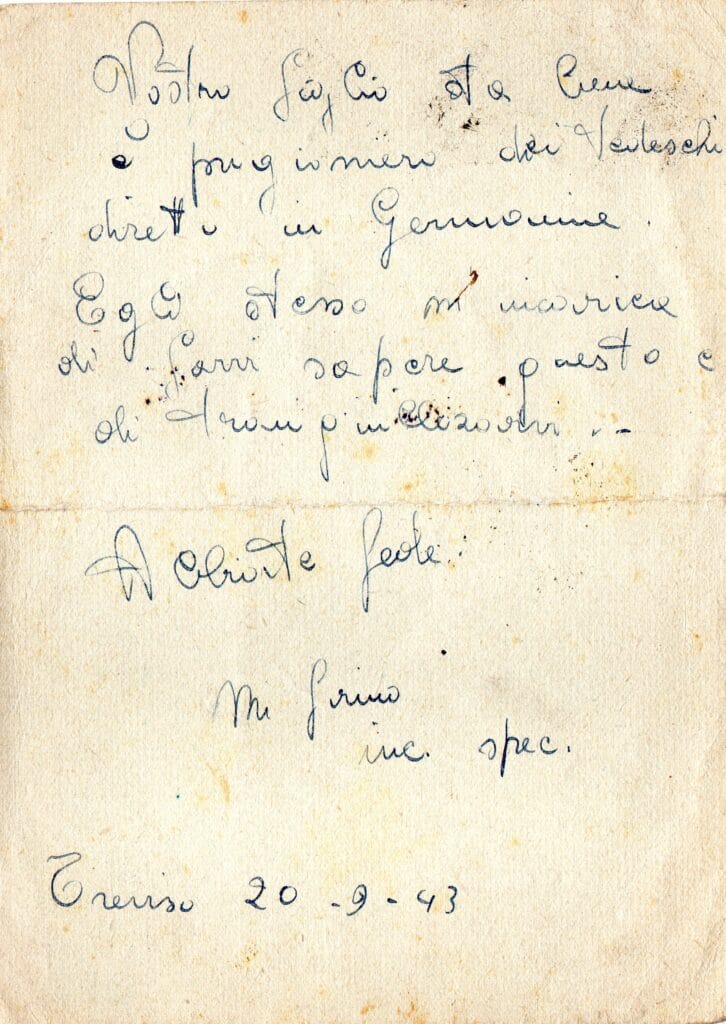 Vostro figlio sta bene
è prigioniero dei Tedeschi
diretto in Germania.
Egli stesso m'incarica
di farvi sapere questo e
di tranquillizzarvi..
Abbiate fede.
Mi firmo
inc. spec.
Treviso 20-9-43